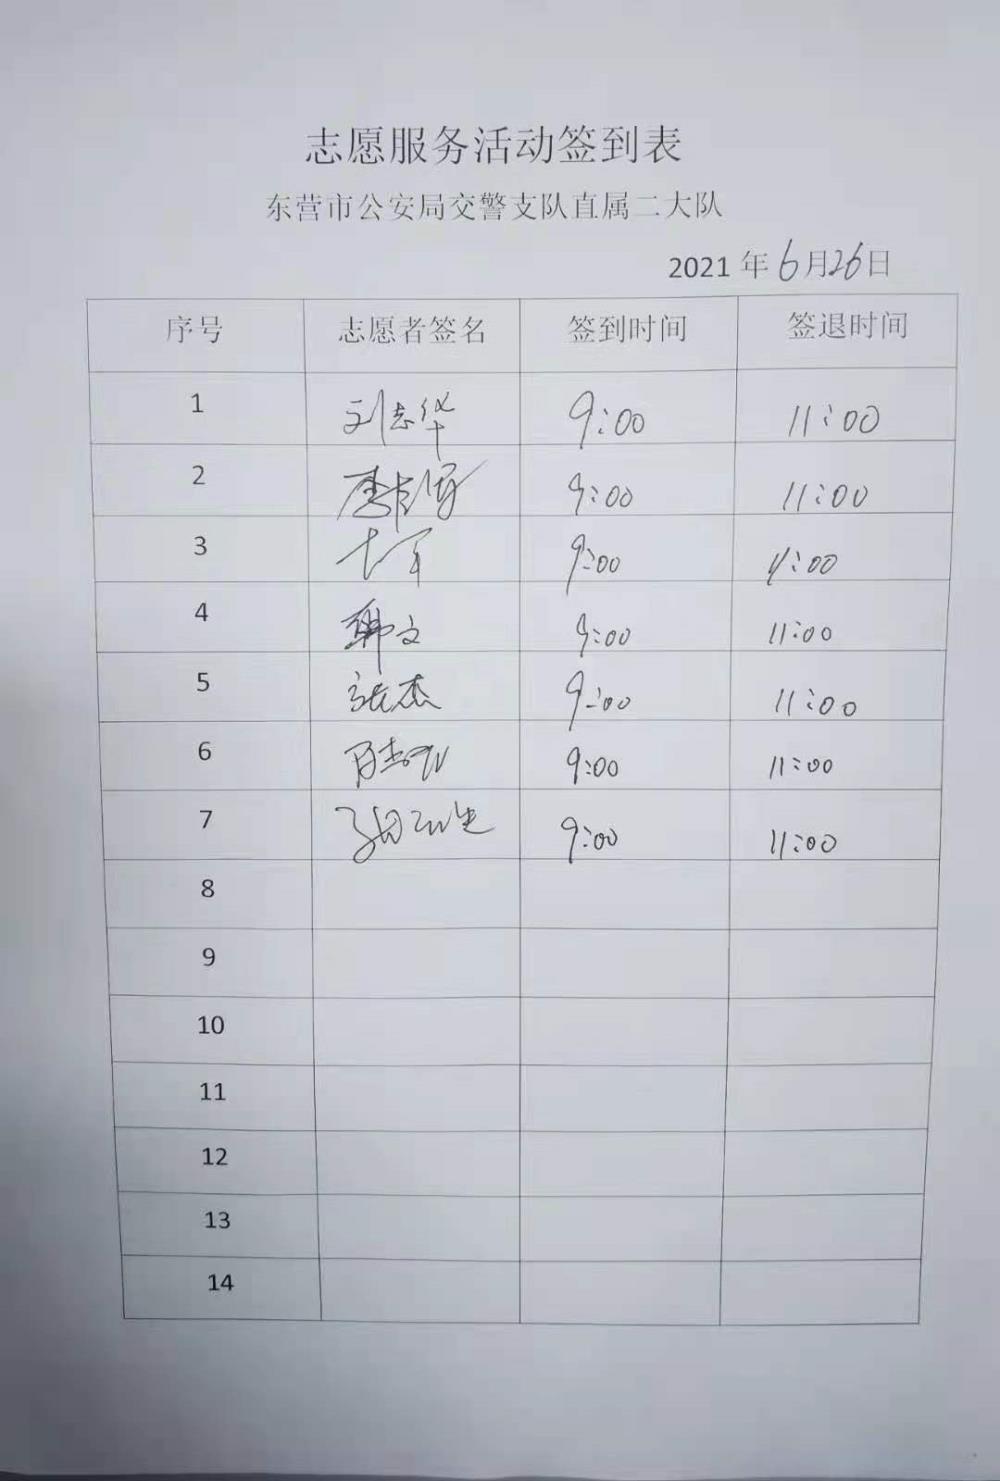 志愿服务活动签到表
东营市公安局交警支队直属二大队
2021 年 6月26日
序号 志愿者签名 签到时间 签退时间
1 刘志华 9:00 11:00
2 9:00 11:00
3 9:00 11:00
4 韩文 9:00 11:00
5 张杰 9:00 11:00
6 9:00 11:00
7 9:00 11:00
8
9
10
11
12
13
14